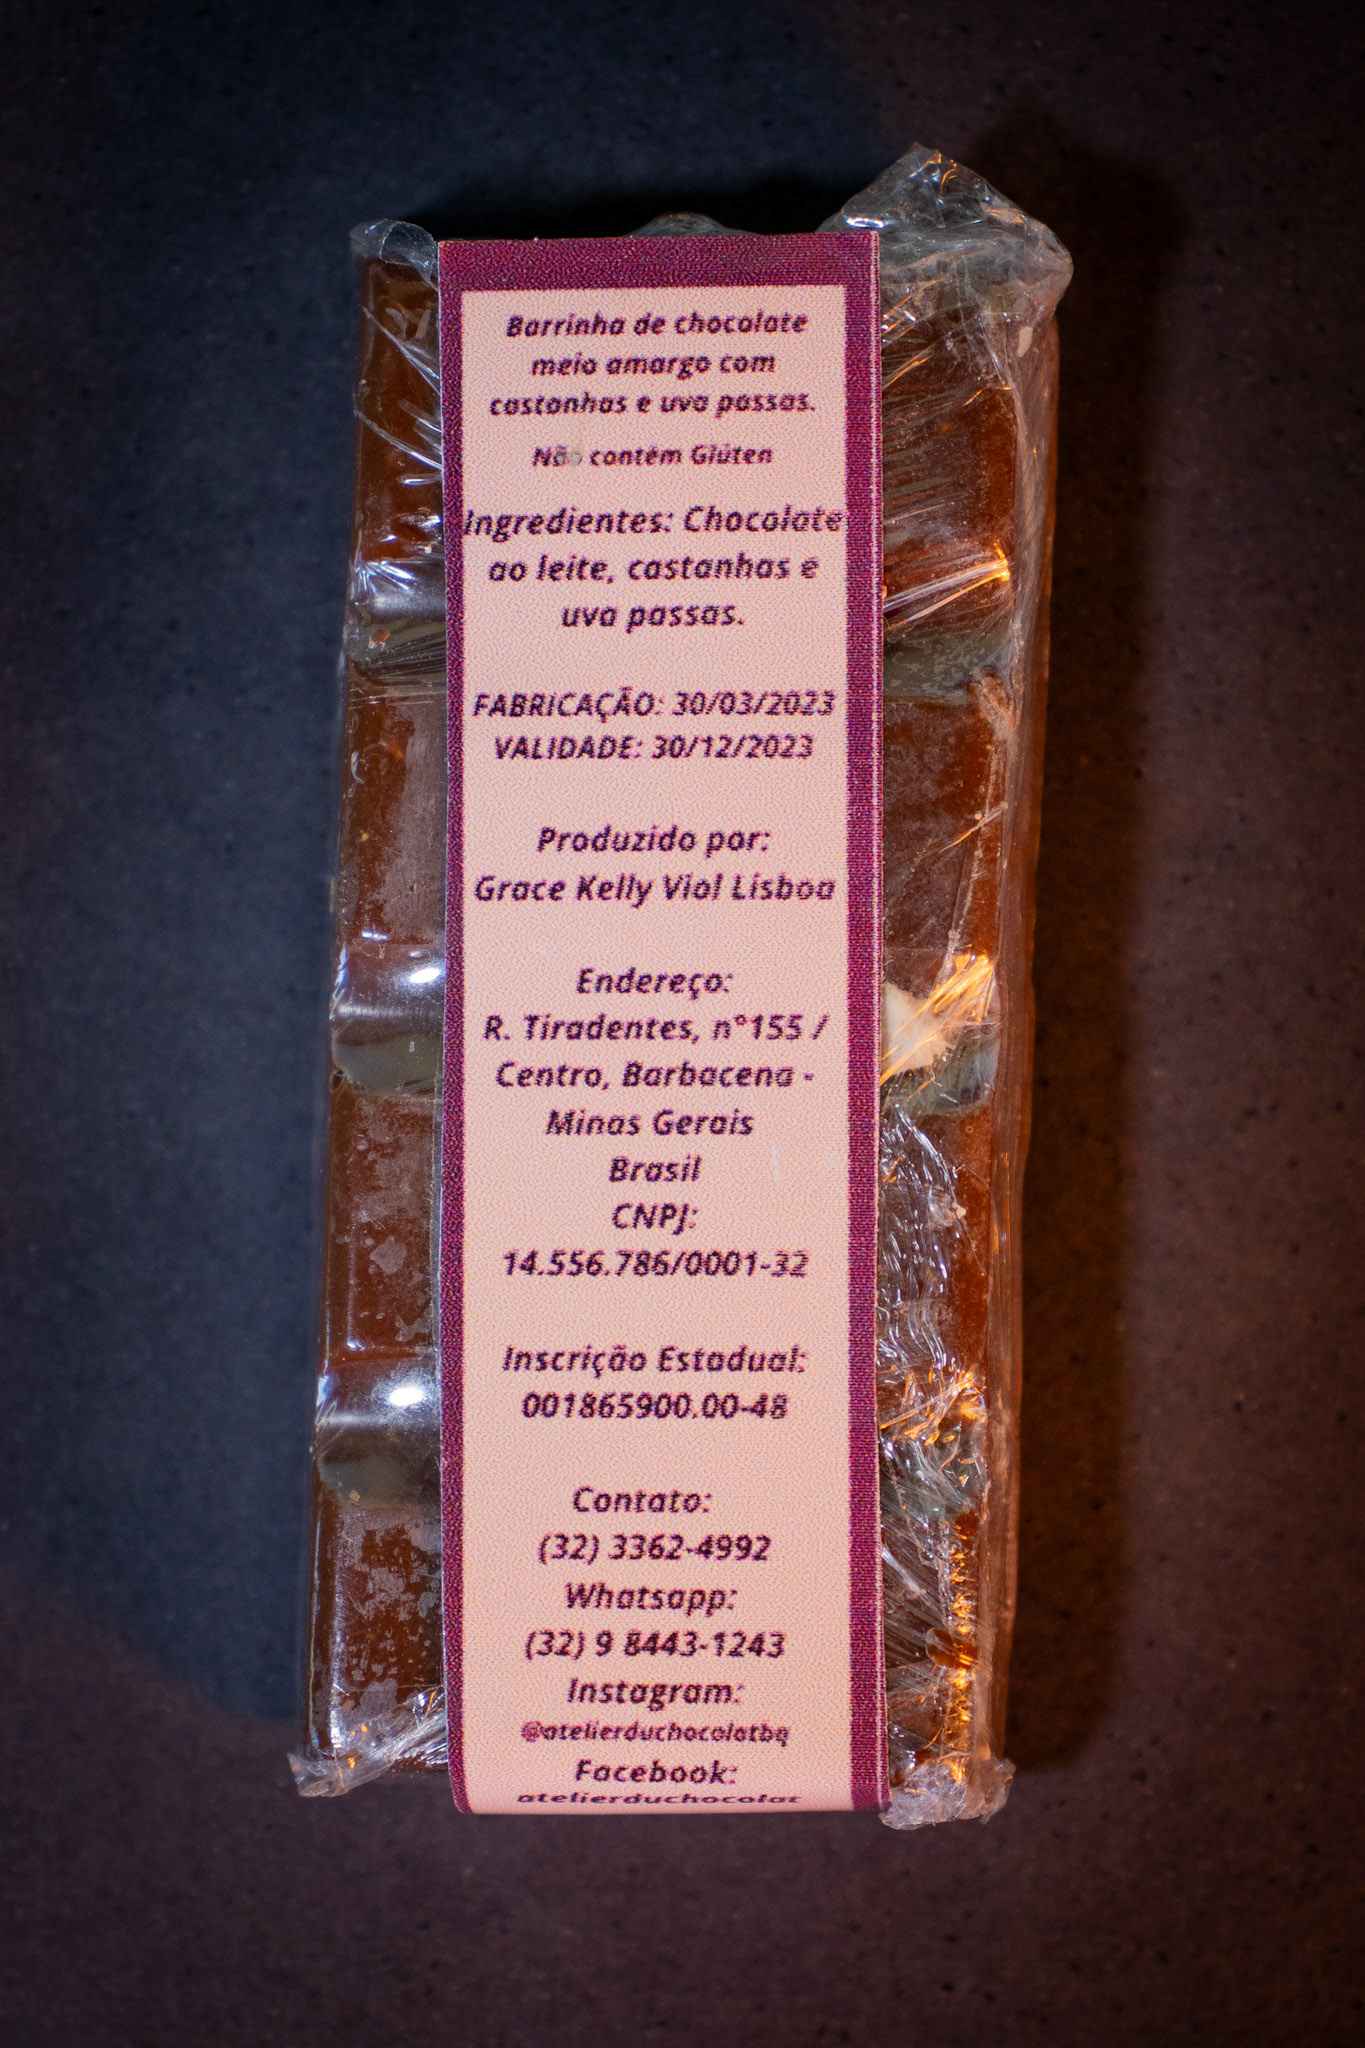 Barrinha de chocolate
meio amargo com
castanhas e uva passas.
Não contém Glúten
Ingredientes: Chocolate
ao leite, castanhas e
uva passas.
FABRICAÇÃO: 30/03/2023
VALIDADE: 30/12/2023
Produzido por:
Grace Kelly Viol Lisboa
Endereço:
R. Tiradentes, n°155 /
Centro, Barbacena -
Minas Gerais
Brasil
CNPJ:
14.556.786/0001-32
Inscrição Estadual:
001865900.00-48
Contato:
(32) 3362-4992
Whatsapp:
(32) 9 8443-1243
Instagram:
@atelierduchocolatbq
Facebook:
atelierduchocolat